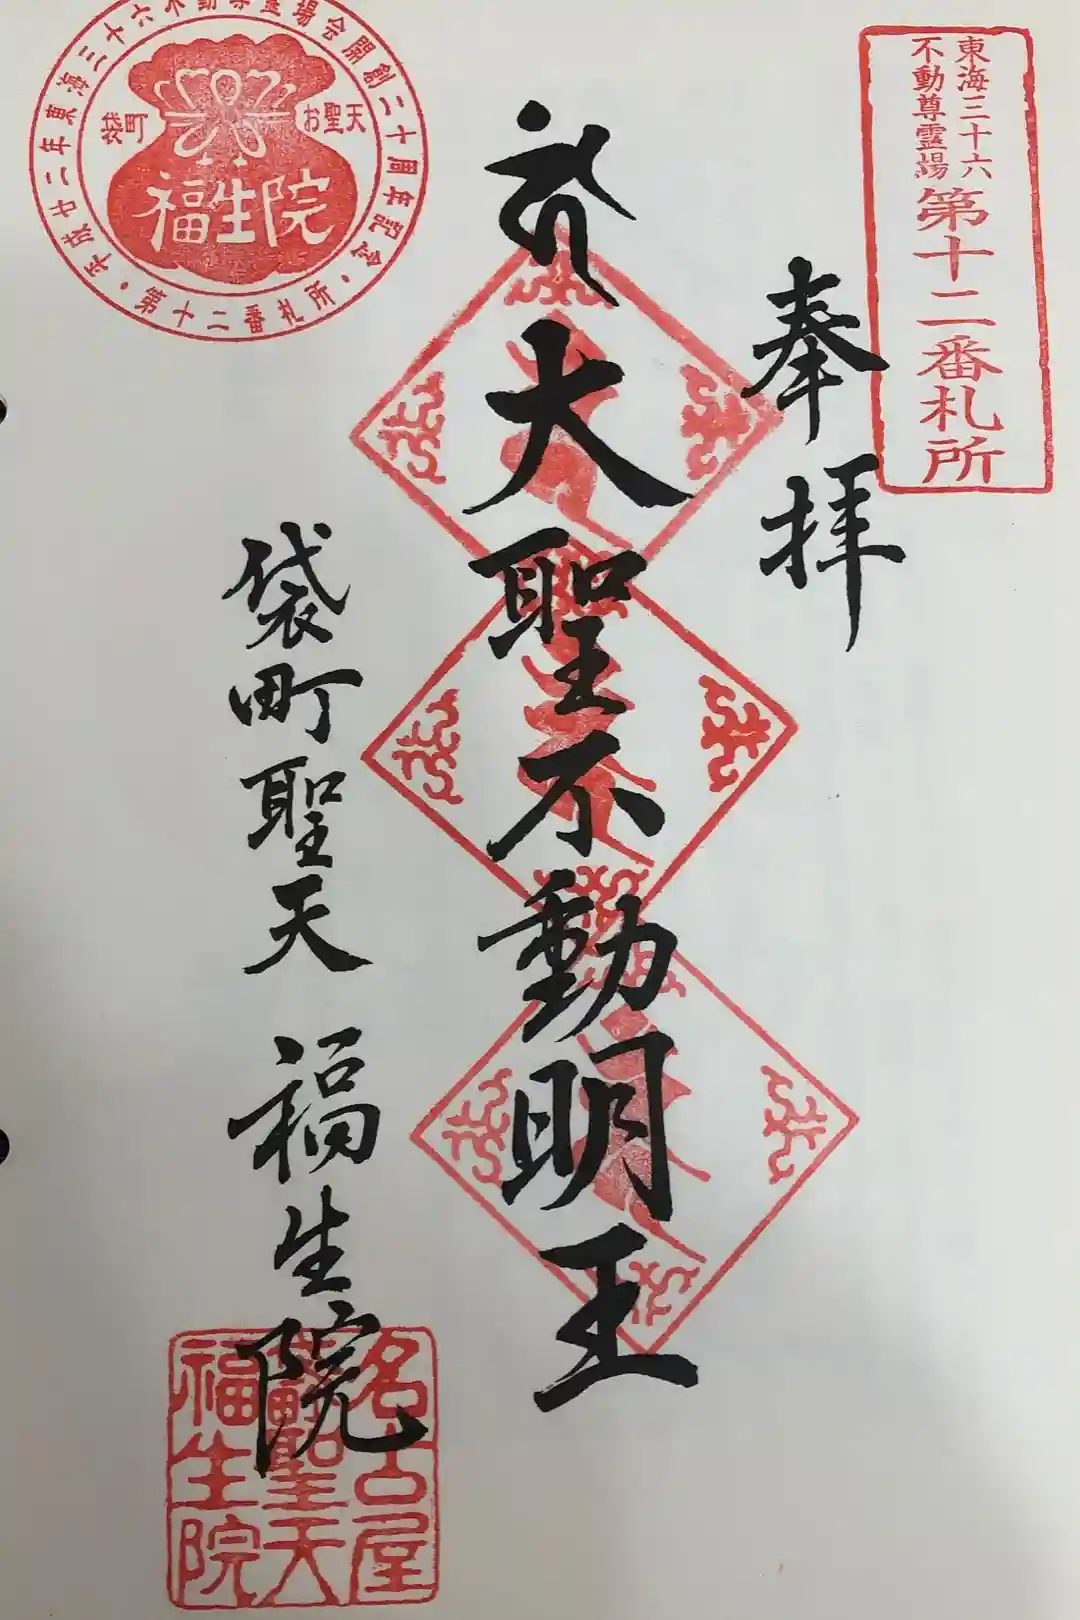 東海三十六
不動尊霊場
第十二番札所
奉拝
大聖不動明王
袋町聖天 福生院
平成廿二年東海三十六不動尊霊場会開創二十周年記念
袋町
お聖天
福生院
・第十二番札所・
名古屋
袋町聖天
福生院